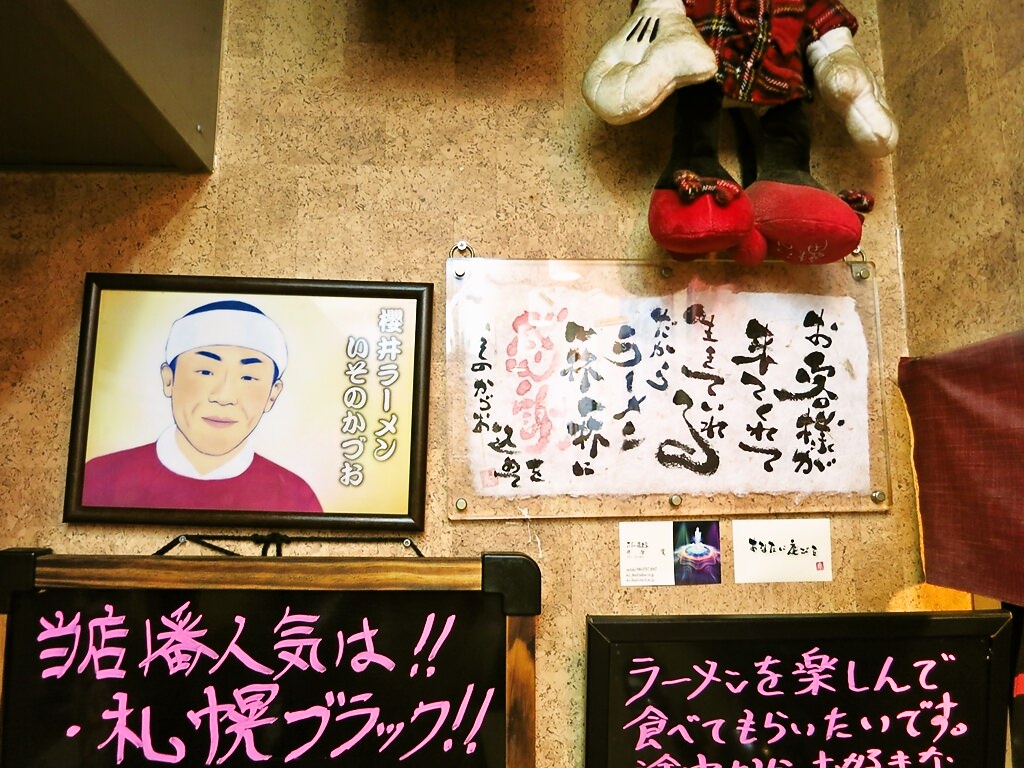 櫻井ラーメン
いそのかづお
お客様が
来てくれて
生きていれる
だから
ラーメン
一杯一杯に
感謝を
込めて
いそのかづお
あなたに逢えて
当店1番人気は!!
・札幌ブラック!!
ラーメンを楽しんで
食べてもらいたいです。